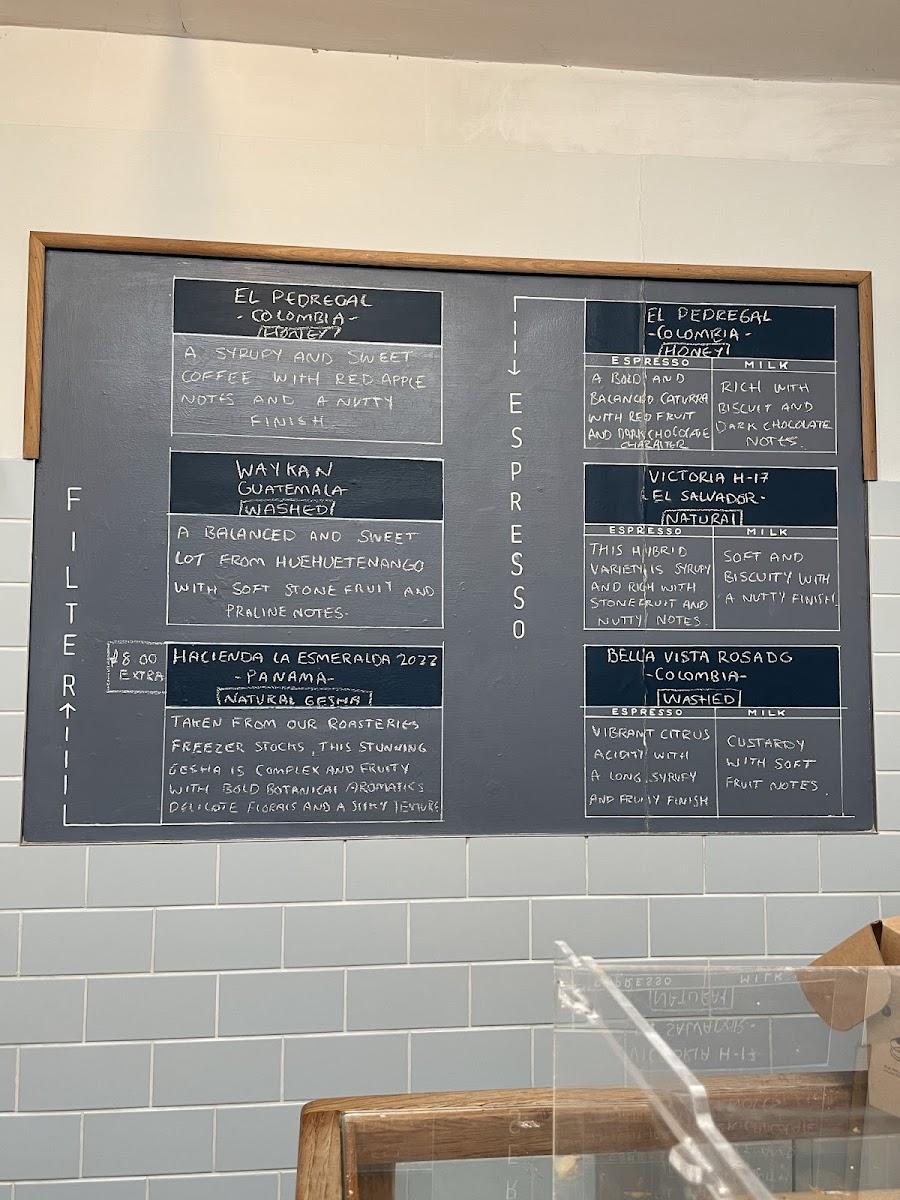 FILTER
EL PEDREGAL
- COLOMBIA -
HONEY
A SYRUPY AND SWEET
COFFEE WITH RED APPLE
NOTES AND A NUTTY
FINISH
WAYKAN
GUATEMALA
WASHED
A BALANCED AND SWEET
LOT FROM HUEHUETENANGO
WITH SOFT STONE FRUIT AND
PRALINE NOTES-
8.00
EXTRA
HACIENDA LA ESMERALDA 2022
- PANAMA-
NATURAL GESHA
TAKEN FROM OUR ROASTERIES
FREEZER STOCKS, THIS STUNNING
GESHA IS COMPLEX AND FRUITY
WITH BOLD BOTANICAL AROMATICS
DELICATE FLORALS AND A SILKY TEXTURE
ESPRESSO
EL PEDREGAL
-COLOMBIA-
HONEY
ESPRESSO
A BOLD AND
BALANCED CATURRA
WITH RED FRUIT
AND DARK CHOCOLATE
CHARACTER
MILK
RICH WITH
BISCUIT AND
DARK CHOCOLATE
NOTES.
VICTORIA H-17
-EL SALVADOR-
NATURAL
ESPRESSO
THIS HYBRID
VARIETY IS SYRUPY
AND RICH WITH
STONEFRUIT AND
NUTTY NOTES
MILK
SOFT AND
BISCUITY WITH
A NUTTY FINISH
BELLA VISTA ROSADO
-COLOMBIA-
WASHED
ESPRESSO
VIBRANT CITRUS
ACIDITY WITH
A LONG SYRUPY
AND FRUITY FINISH
MILK
CUSTARDY
WITH SOFT
FRUIT NOTES.